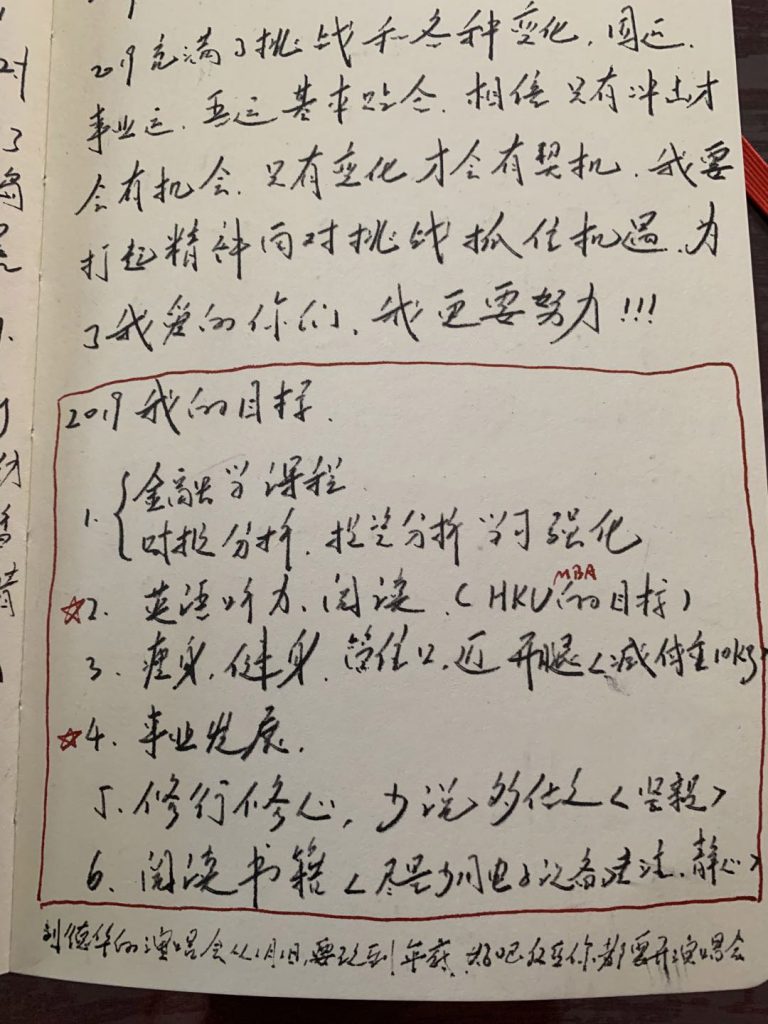 2019充满了挑战和各种变化,国运.
事业运.基本.相信只有冲击才
会有机会.只有变化才会有契机.我要
打起精神面对挑战抓住机遇.为
了我爱的你们.我更要努力!!!
2019我的目标.
1. {金融学课程
财报分析.投资分析学习强化
☆2. 英语听力、阅读.(HKU MBA的目标)
3. 瘦身.健身.管住口.迈开腿<减体重10kg>
☆4. 事业发展.
5. 修行修心,少说多做<坚毅>
6. 阅读书籍<尽量少用电子设备.静心>
刘德华的演唱会从1月1日,要改到年底.好吧反正你都要开演唱会